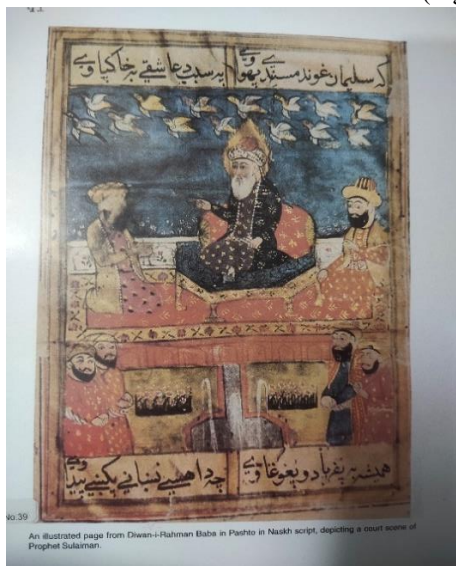 که سلیمان غوند مسندیے پهوا وے په سبب دعاشقے به خاکپا وے
همیشه به پفریاد و پغوغا وے چه دا هسے نښانے پکښے پیدا وے
No.39
An illustrated page from Diwan-i-Rahman Baba in Pashto in Naskh script, depicting a court scene of
Prophet Sulaiman.